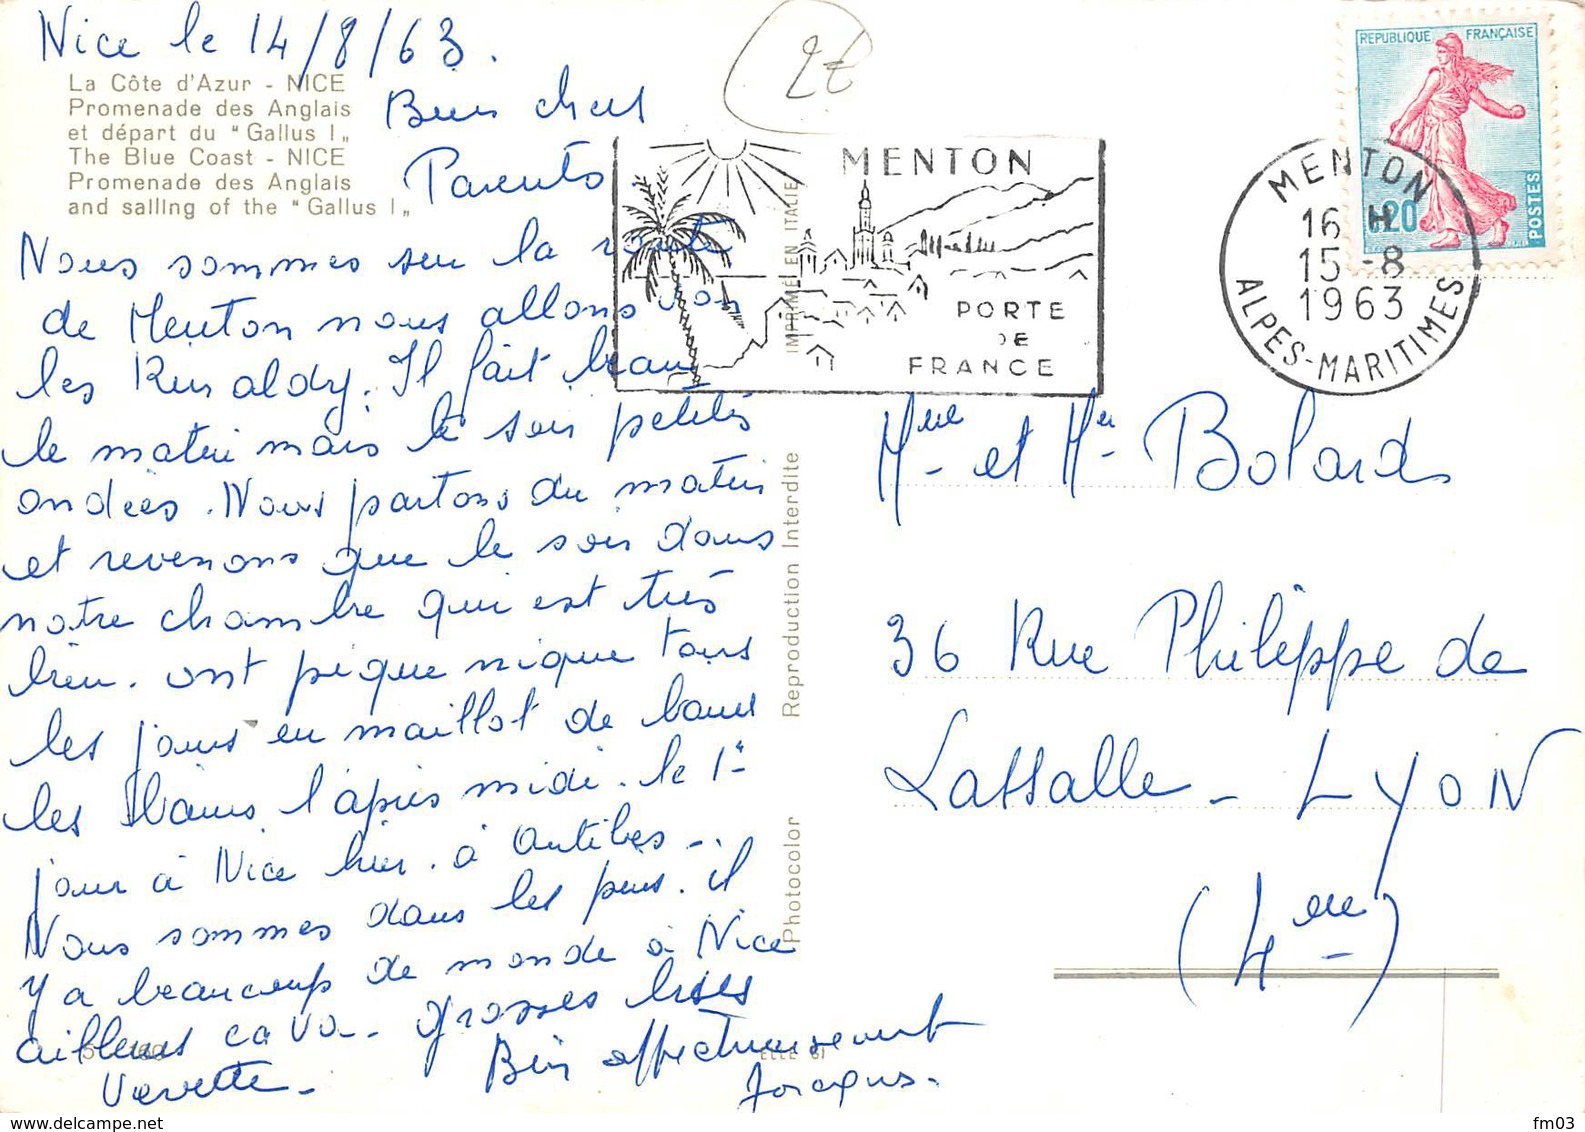 Nice le 14/8/63.
La Côte d'Azur - NICE
Promenade des Anglais
et départ du "Gallus I„
The Blue Coast - NICE
Promenade des Anglais
and sailing of the "Gallus I„
Bien chers
Parents
Nous sommes sur la route
de Menton nous allons voir
les Rinaldy. Il fait beau
le matin mais le soir petites
ondées. Nous partons du matin
et revenons que le soir dans
notre chambre qui est très
bien. ont pique nique tous
les jours en maillot de bains
les bains l'après midi. le 1er
jour à Nice hier. à Antibes -.
Nous sommes dans les pins. il
y a beaucoup de monde à Nice
ailleurs ca va - grosses bises
Bien affectueusement
Vevette - Jacques.
2€
MENTON
PORTE
DE
FRANCE
REPUBLIQUE FRANÇAISE
0,20
POSTES
MENTON
16 H
15 - 8
1963
ALPES-MARITIMES
IMPRIMÉ EN ITALIE
Reproduction Interdite
Photocolor
Mme et Mr Bolard
36 Rue Philippe de
Lassalle - LYON
(4eme)
www.delcampe.net
fm03